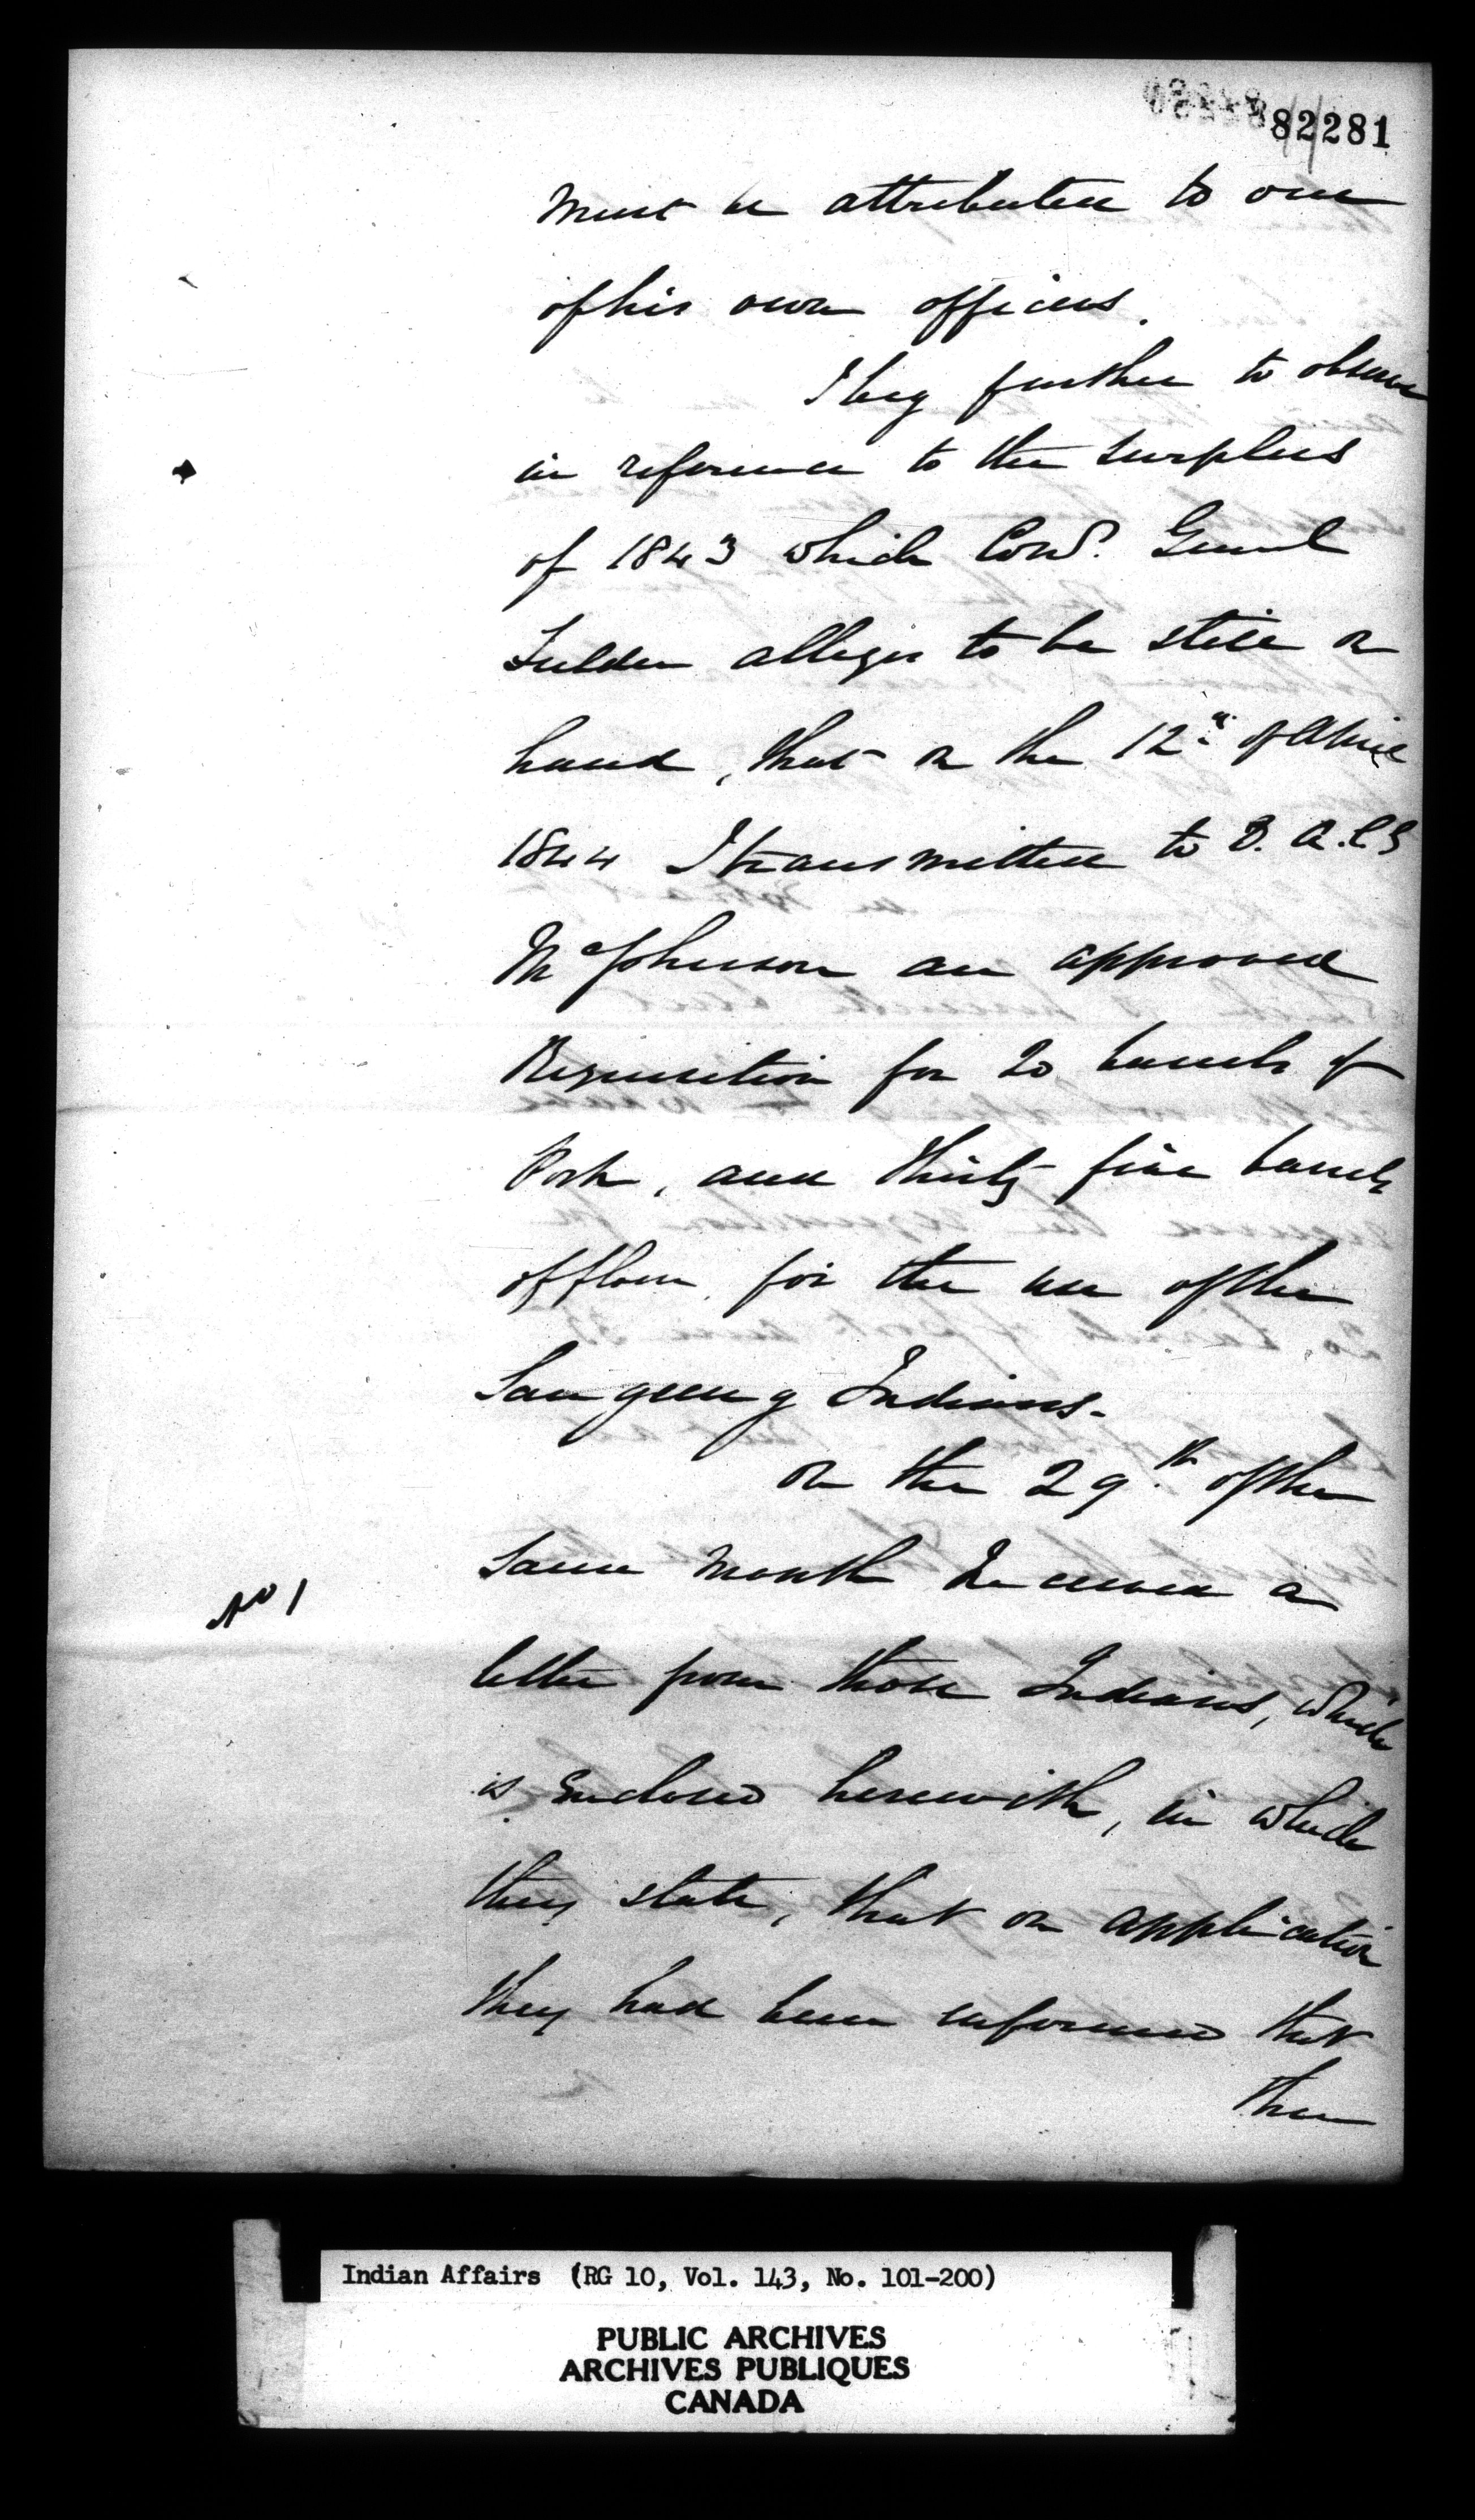 82281
must be attributed to one
of his own officers.
I beg further to observe
in reference to the surplus
of 1843 which Com.ʸ General
alleges to be still on
hand, that on the 12.th of April
1844 I transmitted to D. A. C. G
an approved
Requisition for 20 barrels of
Pork, and thirty five barrels
of flour, for the use of the
Saugeeng Indians.
On the 29.th of the
same month I received a
No 1
letter from those Indians, which
is enclosed herewith, in which
they state, that on application
they had been informed that
there
Indian Affairs (RG 10, Vol. 143, No. 101-200)
PUBLIC ARCHIVES
ARCHIVES PUBLIQUES
CANADA